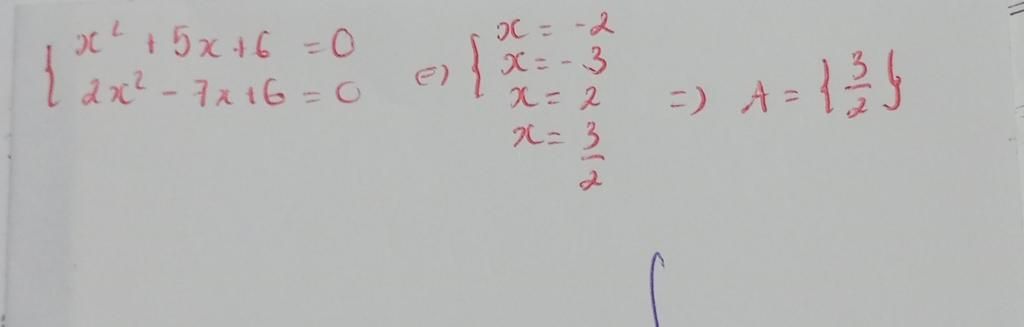 { x² + 5x + 6 = 0
2x² - 7x + 6 = 0
⇔ { x = -2
x = -3
x = 2
x = 3/2
⇒ A = {3/2}